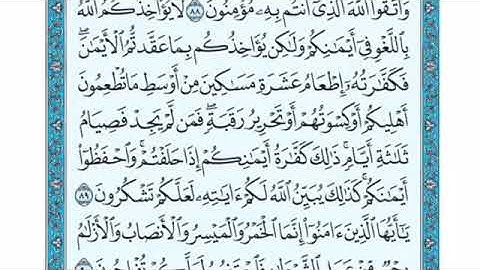 وَاتَّقُوا اللَّهَ الَّذِىٓ أَنتُم بِهِۦ مُؤْمِنُونَ ٨٨ لَا يُؤَاخِذُكُمُ اللَّهُ
بِاللَّغْوِ فِىٓ أَيْمَـٰنِكُمْ وَلَـٰكِن يُؤَاخِذُكُم بِمَا عَقَّدتُّمُ الْأَيْمَـٰنَ ۖ
فَكَفَّـٰرَتُهُۥٓ إِطْعَامُ عَشَرَةِ مَسَـٰكِينَ مِنْ أَوْسَطِ مَا تُطْعِمُونَ
أَهْلِيكُمْ أَوْ كِسْوَتُهُمْ أَوْ تَحْرِيرُ رَقَبَةٍ ۖ فَمَن لَّمْ يَجِدْ فَصِيَامُ
ثَلَـٰثَةِ أَيَّامٍ ۚ ذَٰلِكَ كَفَّـٰرَةُ أَيْمَـٰنِكُمْ إِذَا حَلَفْتُمْ ۚ وَاحْفَظُوٓا
أَيْمَـٰنَكُمْ ۚ كَذَٰلِكَ يُبَيِّنُ اللَّهُ لَكُمْ ءَايَـٰتِهِۦ لَعَلَّكُمْ تَشْكُرُونَ ٨٩
يَـٰٓأَيُّهَا الَّذِينَ ءَامَنُوٓا إِنَّمَا الْخَمْرُ وَالْمَيْسِرُ وَالْأَنصَابُ وَالْأَزْلَـٰمُ